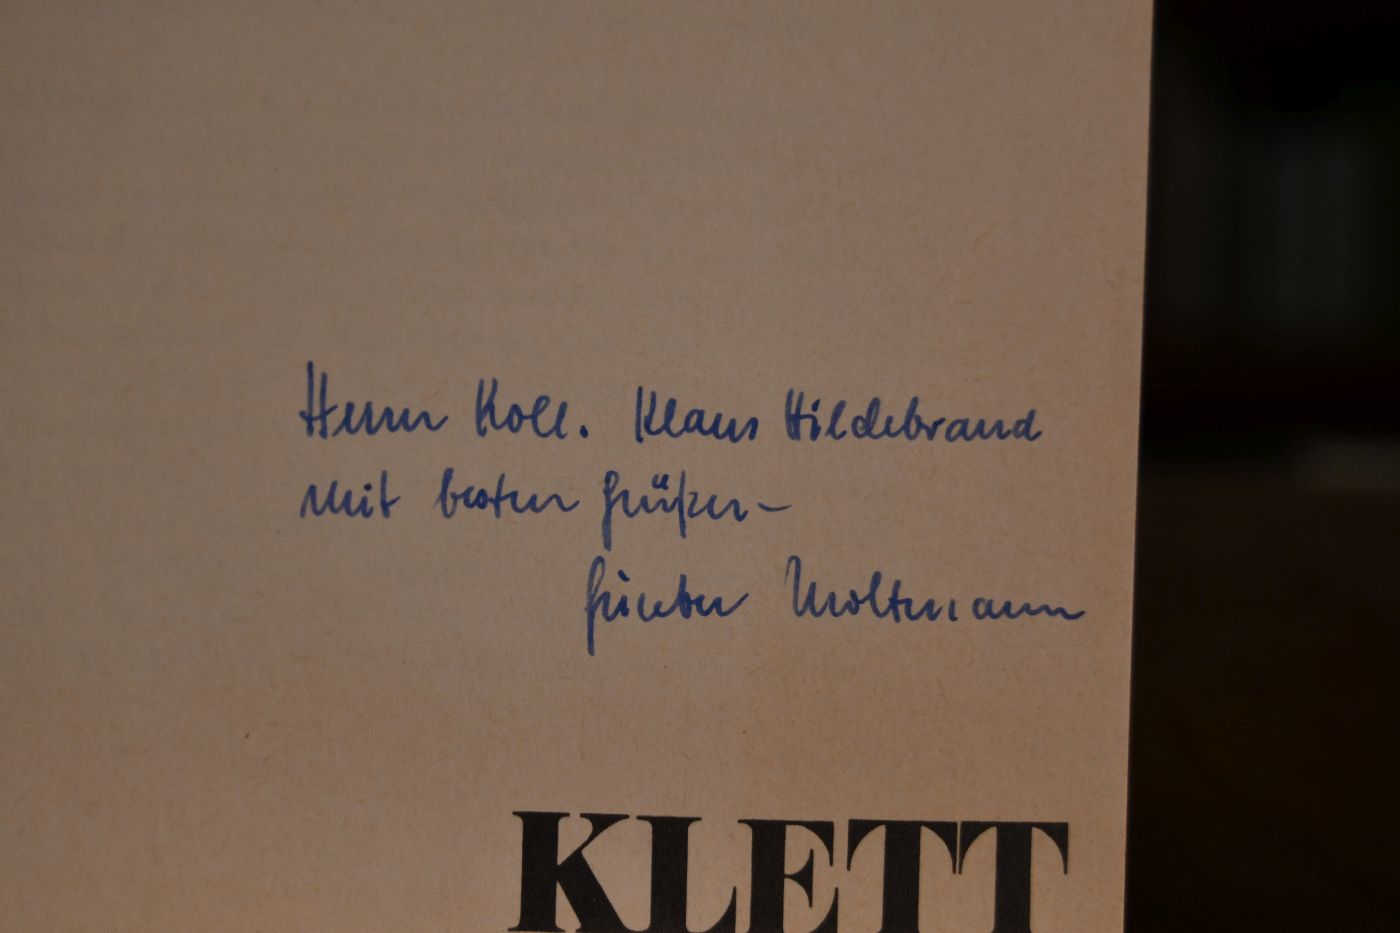 Herrn Koll. Klaus Hildebrand
mit besten Grüßen –
Günter Moltmann
KLETT